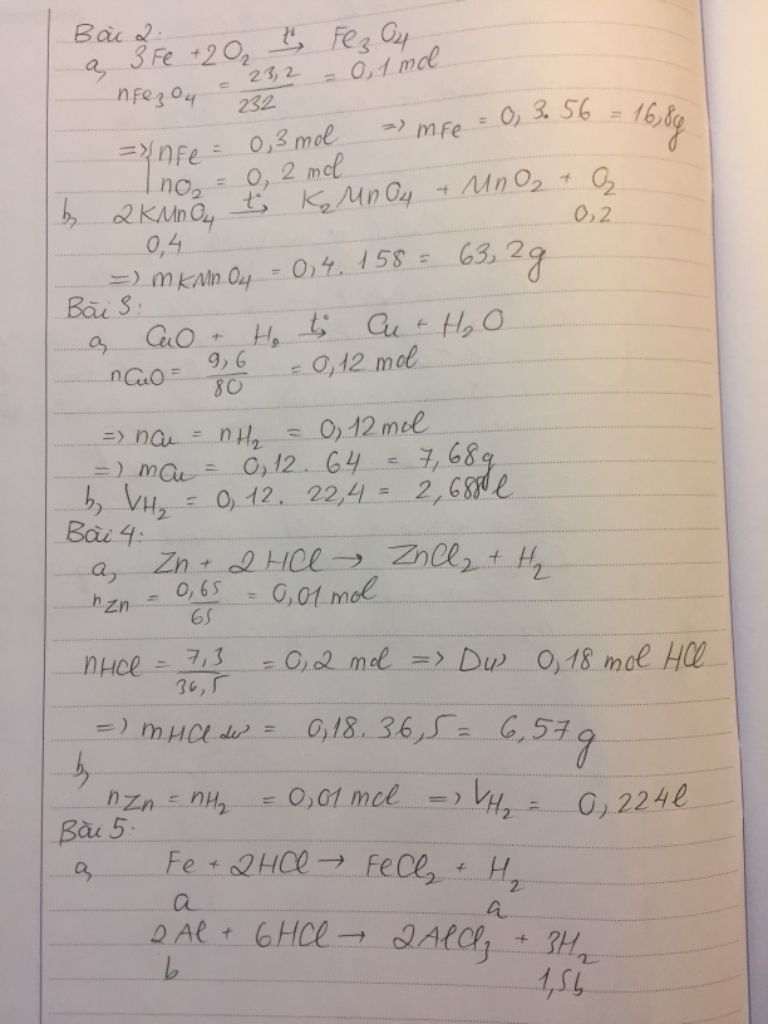 Bài 2:
a, 3Fe + 2O₂ →(t°) Fe₃O₄
nFe₃O₄ = 23,2/232 = 0,1 mol
=> nFe = 0,3 mol => mFe = 0,3.56 = 16,8g
nO₂ = 0,2 mol
b, 2KMnO₄ →(t°) K₂MnO₄ + MnO₂ + O₂
0,4 0,2
=> mKMnO₄ = 0,4.158 = 63,2g
Bài 3:
a, CuO + H₂ →(t°) Cu + H₂O
nCuO = 9,6/80 = 0,12 mol
=> nCu = nH₂ = 0,12 mol
=> mCu = 0,12.64 = 7,68g
b, VH₂ = 0,12.22,4 = 2,688l
Bài 4:
a, Zn + 2HCl → ZnCl₂ + H₂
nZn = 0,65/65 = 0,01 mol
nHCl = 7,3/36,5 = 0,2 mol => Dư 0,18 mol HCl
=> mHCl dư = 0,18.36,5 = 6,57g
b,
nZn = nH₂ = 0,01 mol => VH₂ = 0,224l
Bài 5:
a, Fe + 2HCl → FeCl₂ + H₂
a a
2Al + 6HCl → 2AlCl₃ + 3H₂
b 1,5b